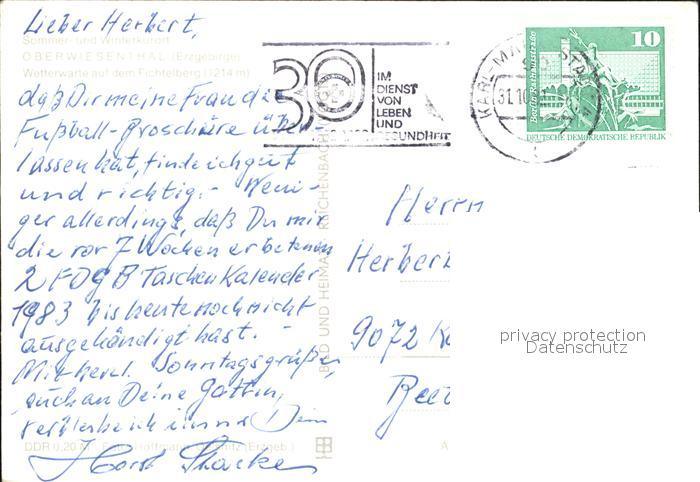 Lieber Herbert,
Sommer- und Winterkurort
OBERWIESENTHAL (Erzgebirge)
Wetterwarte auf dem Fichtelberg (1214 m)
daß Dir meine Frau die
Fußball-Broschüre über-
lassen hat, finde ich gut
und richtig. - Weni-
ger allerdings, daß Du mir
die vor 7 Wochen erbetenen
2 FDGB Taschenkalender
1983 bis heute noch nicht
ausgehändigt hast. -
Mit herzl. Sonntagsgrüßen,
auch an Deine Gattin,
verbleibe ich immer Dein
Horst
DDR 0,20 M
BILD UND HEIMAT REICHENBACH
30 IM
DIENST
VON
LEBEN
UND
GESUNDHEIT
KARL-MARX-STADT
31.10
10
DEUTSCHE DEMOKRATISCHE REPUBLIK
Herrn
Herbert
9072 K
privacy protection
Datenschutz
A